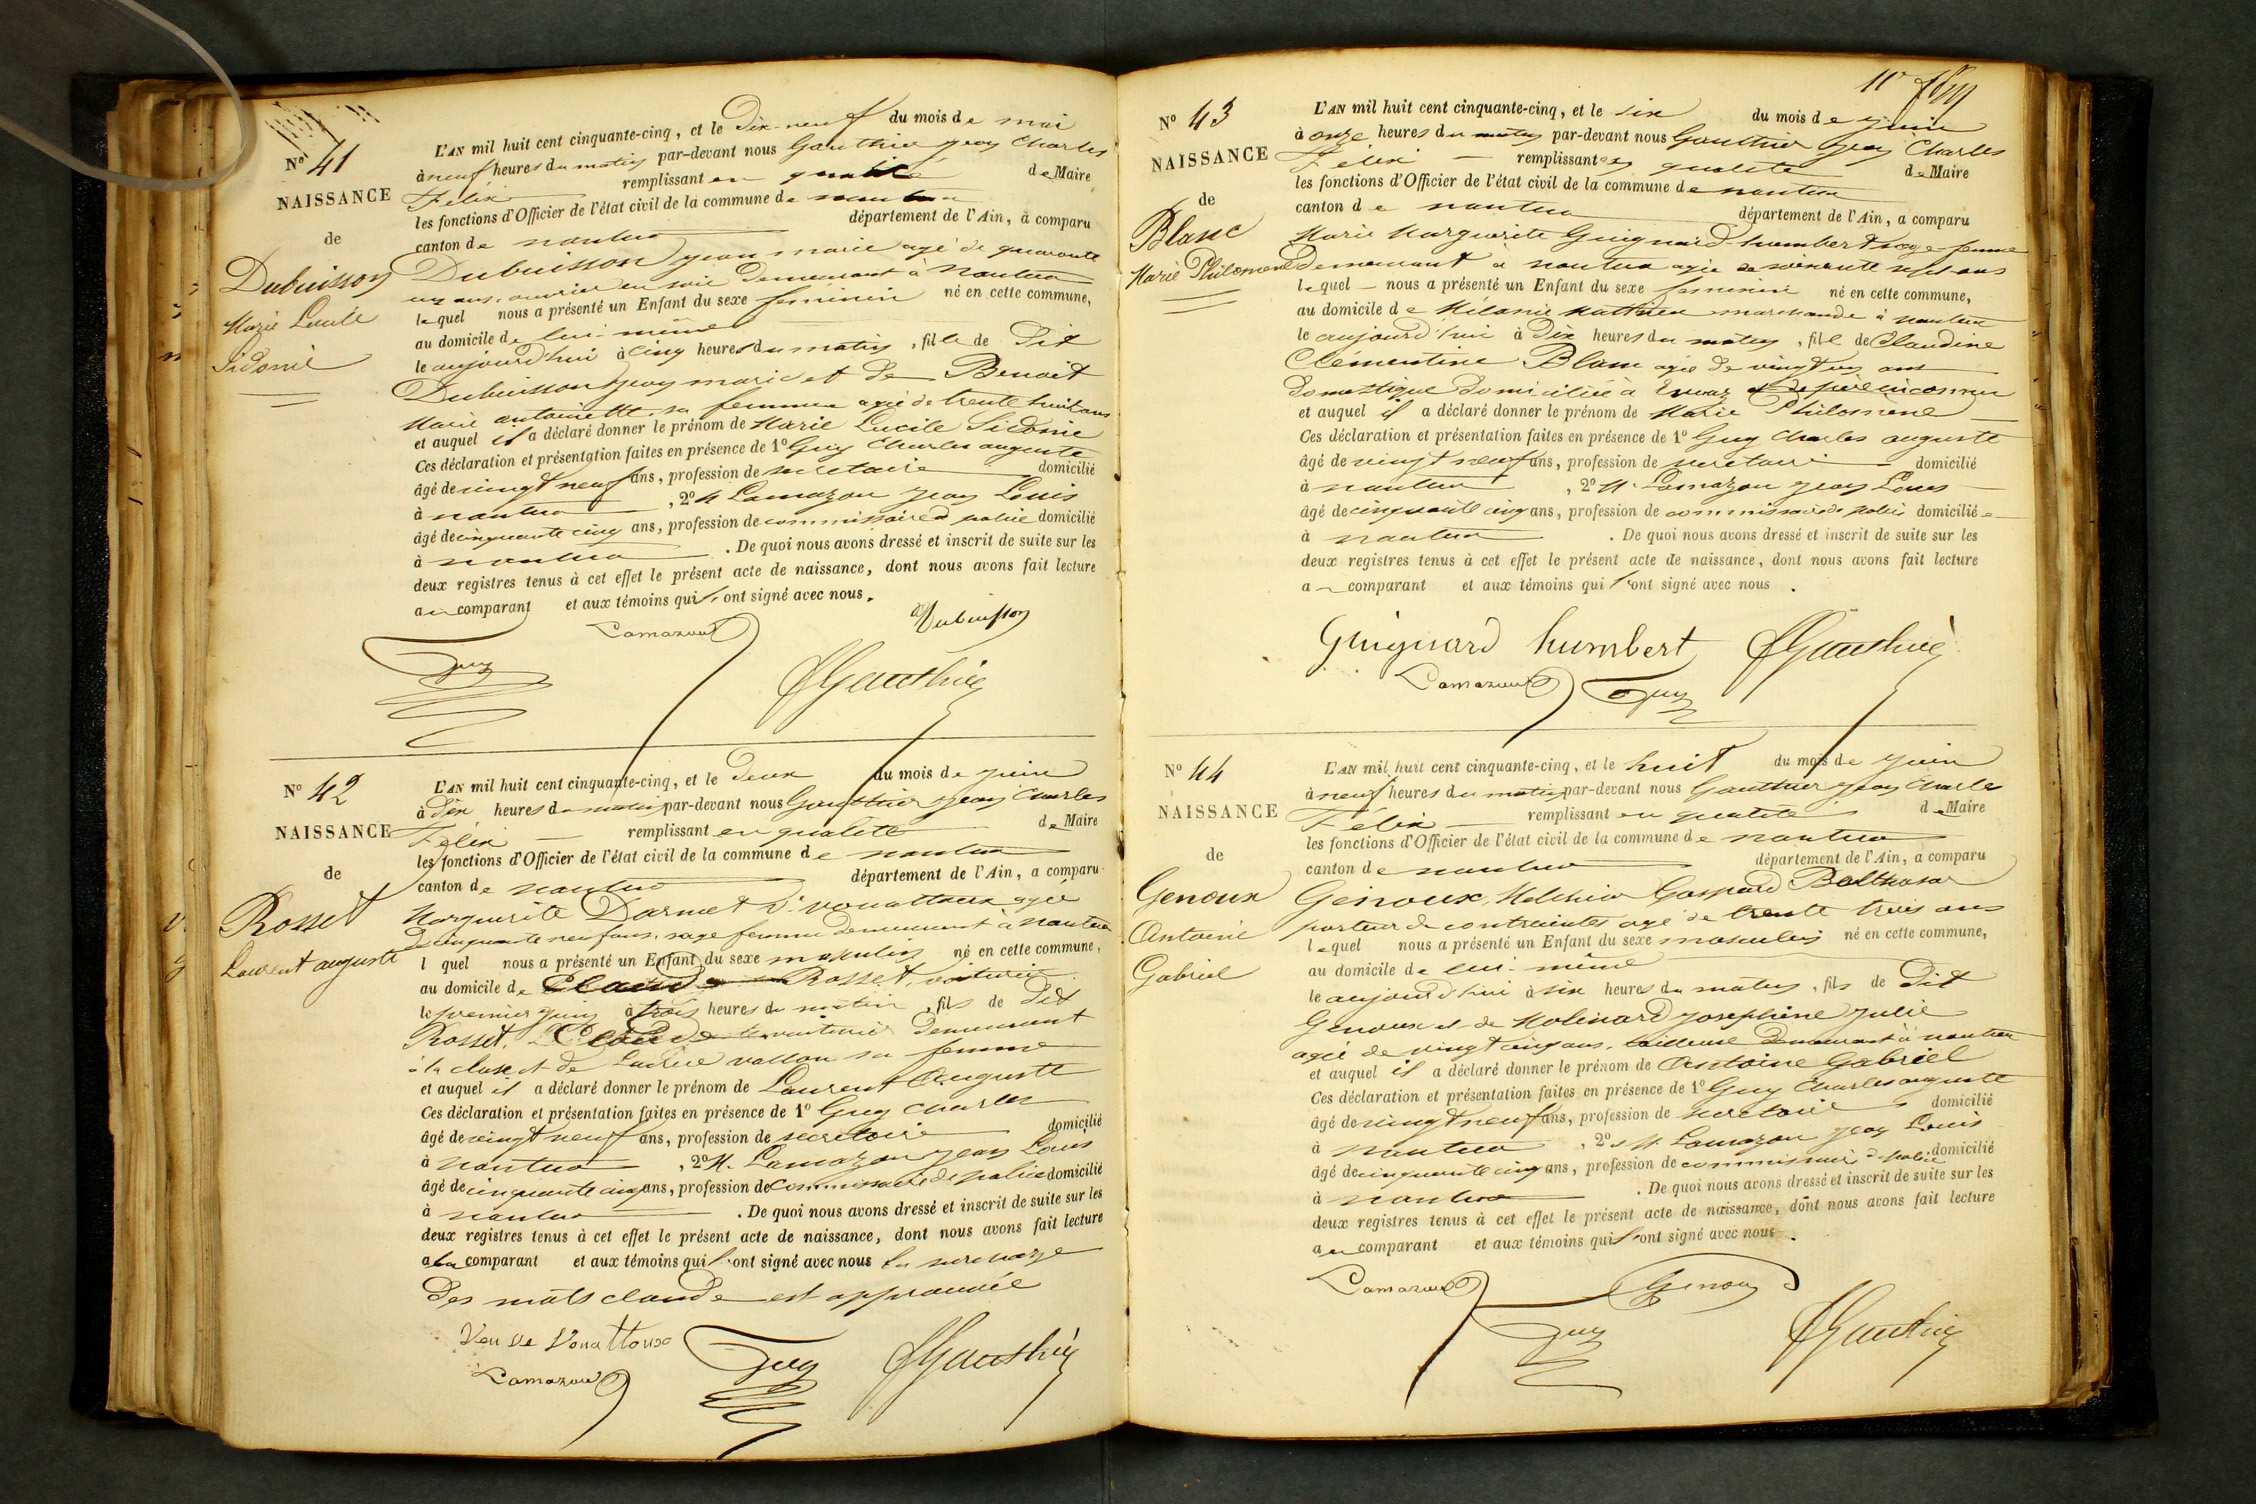 Nº 41
NAISSANCE
de
Dubuisson
Marie Lucile
Sidonie
L'AN mil huit cent cinquante-cinq, et le Dix-neuf du mois de mai
à neuf heures du matin par-devant nous Gauthier Jean Charles
Félix remplissant en qualité de Maire
les fonctions d'Officier de l'état civil de la commune de nantua
canton de nantua département de l'Ain, a comparu
Dubuisson jean marie agé de quarante
un ans, ouvrier en soie demeurant à Nantua
lequel nous a présenté un Enfant du sexe féminin né en cette commune,
au domicile de lui-même
le aujourd'hui à cinq heures du matin, fille de Dit
Dubuisson Jean marie et de Benoit
Marie antoinette sa femme agée de trente huit ans
et auquel il a déclaré donner le prénom de Marie Lucile Sidonie
Ces déclaration et présentation faites en présence de 1º Guy Charles auguste
âgé de vingt neuf ans, profession de secretaire domicilié
à nantua , 2º M. Lamazou Jean Louis
âgé de cinquante cinq ans, profession de commissaire de police domicilié
à nantua . De quoi nous avons dressé et inscrit de suite sur les
deux registres tenus à cet effet le présent acte de naissance, dont nous avons fait lecture
au comparant et aux témoins qui ont signé avec nous.
Lamazou Dubuisson
Guy FGauthier
Nº 42
NAISSANCE
de
Rosset
Laurent auguste
L'AN mil huit cent cinquante-cinq, et le deux du mois de juin
à dix heures du matin par-devant nous Gauthier Jean Charles
Félix remplissant en qualité de Maire
les fonctions d'Officier de l'état civil de la commune de nantua
canton de nantua département de l'Ain, a comparu
Marguerite Darmet Vve vouattoux agée
de cinquante neuf ans, sage femme demeurant à Nantua
l quel nous a présenté un Enfant du sexe masculin né en cette commune,
au domicile de Claude Rosset, voiturier
le premier juin à trois heures du matin, fils de Dit
Rosset Claude voiturier demeurant
à la cluse et de vallon sa femme
et auquel il a déclaré donner le prénom de Laurent Auguste
Ces déclaration et présentation faites en présence de 1º Guy Charles
âgé de vingt neuf ans, profession de secretaire domicilié
à nantua , 2º M. Lamazou Jean Louis
âgé de cinquante cinq ans, profession de commissaire de police domicilié
à nantua . De quoi nous avons dressé et inscrit de suite sur les
deux registres tenus à cet effet le présent acte de naissance, dont nous avons fait lecture
a la comparant et aux témoins qui ont signé avec nous la surcharge
des mots claude est approuvée
Veuve Vouattoux
Lamazou Guy FGauthier
Nº 43
NAISSANCE
de
Blanc
Marie Philomene
L'AN mil huit cent cinquante-cinq, et le six du mois de juin
à onze heures du matin par-devant nous Gauthier Jean Charles
Félix remplissant en qualité de Maire
les fonctions d'Officier de l'état civil de la commune de nantua
canton de nantua département de l'Ain, a comparu
Marie Marguerite Guignard humbert sage-femme
demeurant à nantua agée de ans
lequel nous a présenté un Enfant du sexe feminin né en cette commune,
au domicile de Mélanie Mathieu marchande à nantua
le aujourd'hui à Dix heures du matin, fille de Claudine
Clémentine Blanc agée de vingt un ans
domestique domiciliée à et de père inconnu
et auquel il a déclaré donner le prénom de Marie Philomene
Ces déclaration et présentation faites en présence de 1º Guy Charles auguste
âgé de vingt neuf ans, profession de secretaire domicilié
à nantua , 2º M. Lamazou Jean Louis
âgé de cinquante cinq ans, profession de commissaire de police domicilié
à nantua . De quoi nous avons dressé et inscrit de suite sur les
deux registres tenus à cet effet le présent acte de naissance, dont nous avons fait lecture
a comparant et aux témoins qui ont signé avec nous.
Guignard humbert FGauthier
Lamazou Guy
Nº 44
NAISSANCE
de
Genoux
Antoine
Gabriel
L'AN mil huit cent cinquante-cinq, et le huit du mois de juin
à neuf heures du matin par-devant nous Gauthier Jean Charles
Félix remplissant en qualité de Maire
les fonctions d'Officier de l'état civil de la commune de nantua
canton de nantua département de l'Ain, a comparu
Genoux, Melchior Gaspard Balthasar
porteur de contraintes agé de trente trois ans
lequel nous a présenté un Enfant du sexe masculin né en cette commune,
au domicile de lui-même
le aujourd'hui à six heures du matin, fils de Dit
Genoux et de Molinard josephine julie
agée de vingt cinq ans, tailleuse demeurant à nantua
et auquel il a déclaré donner le prénom de Antoine Gabriel
Ces déclaration et présentation faites en présence de 1º Guy Charles auguste
âgé de vingt neuf ans, profession de secretaire domicilié
à Nantua , 2º M. Lamazou Jean Louis
âgé de cinquante cinq ans, profession de commissaire de police domicilié
à nantua . De quoi nous avons dressé et inscrit de suite sur les
deux registres tenus à cet effet le présent acte de naissance, dont nous avons fait lecture
au comparant et aux témoins qui ont signé avec nous.
Lamazou Genoux
Guy FGauthier